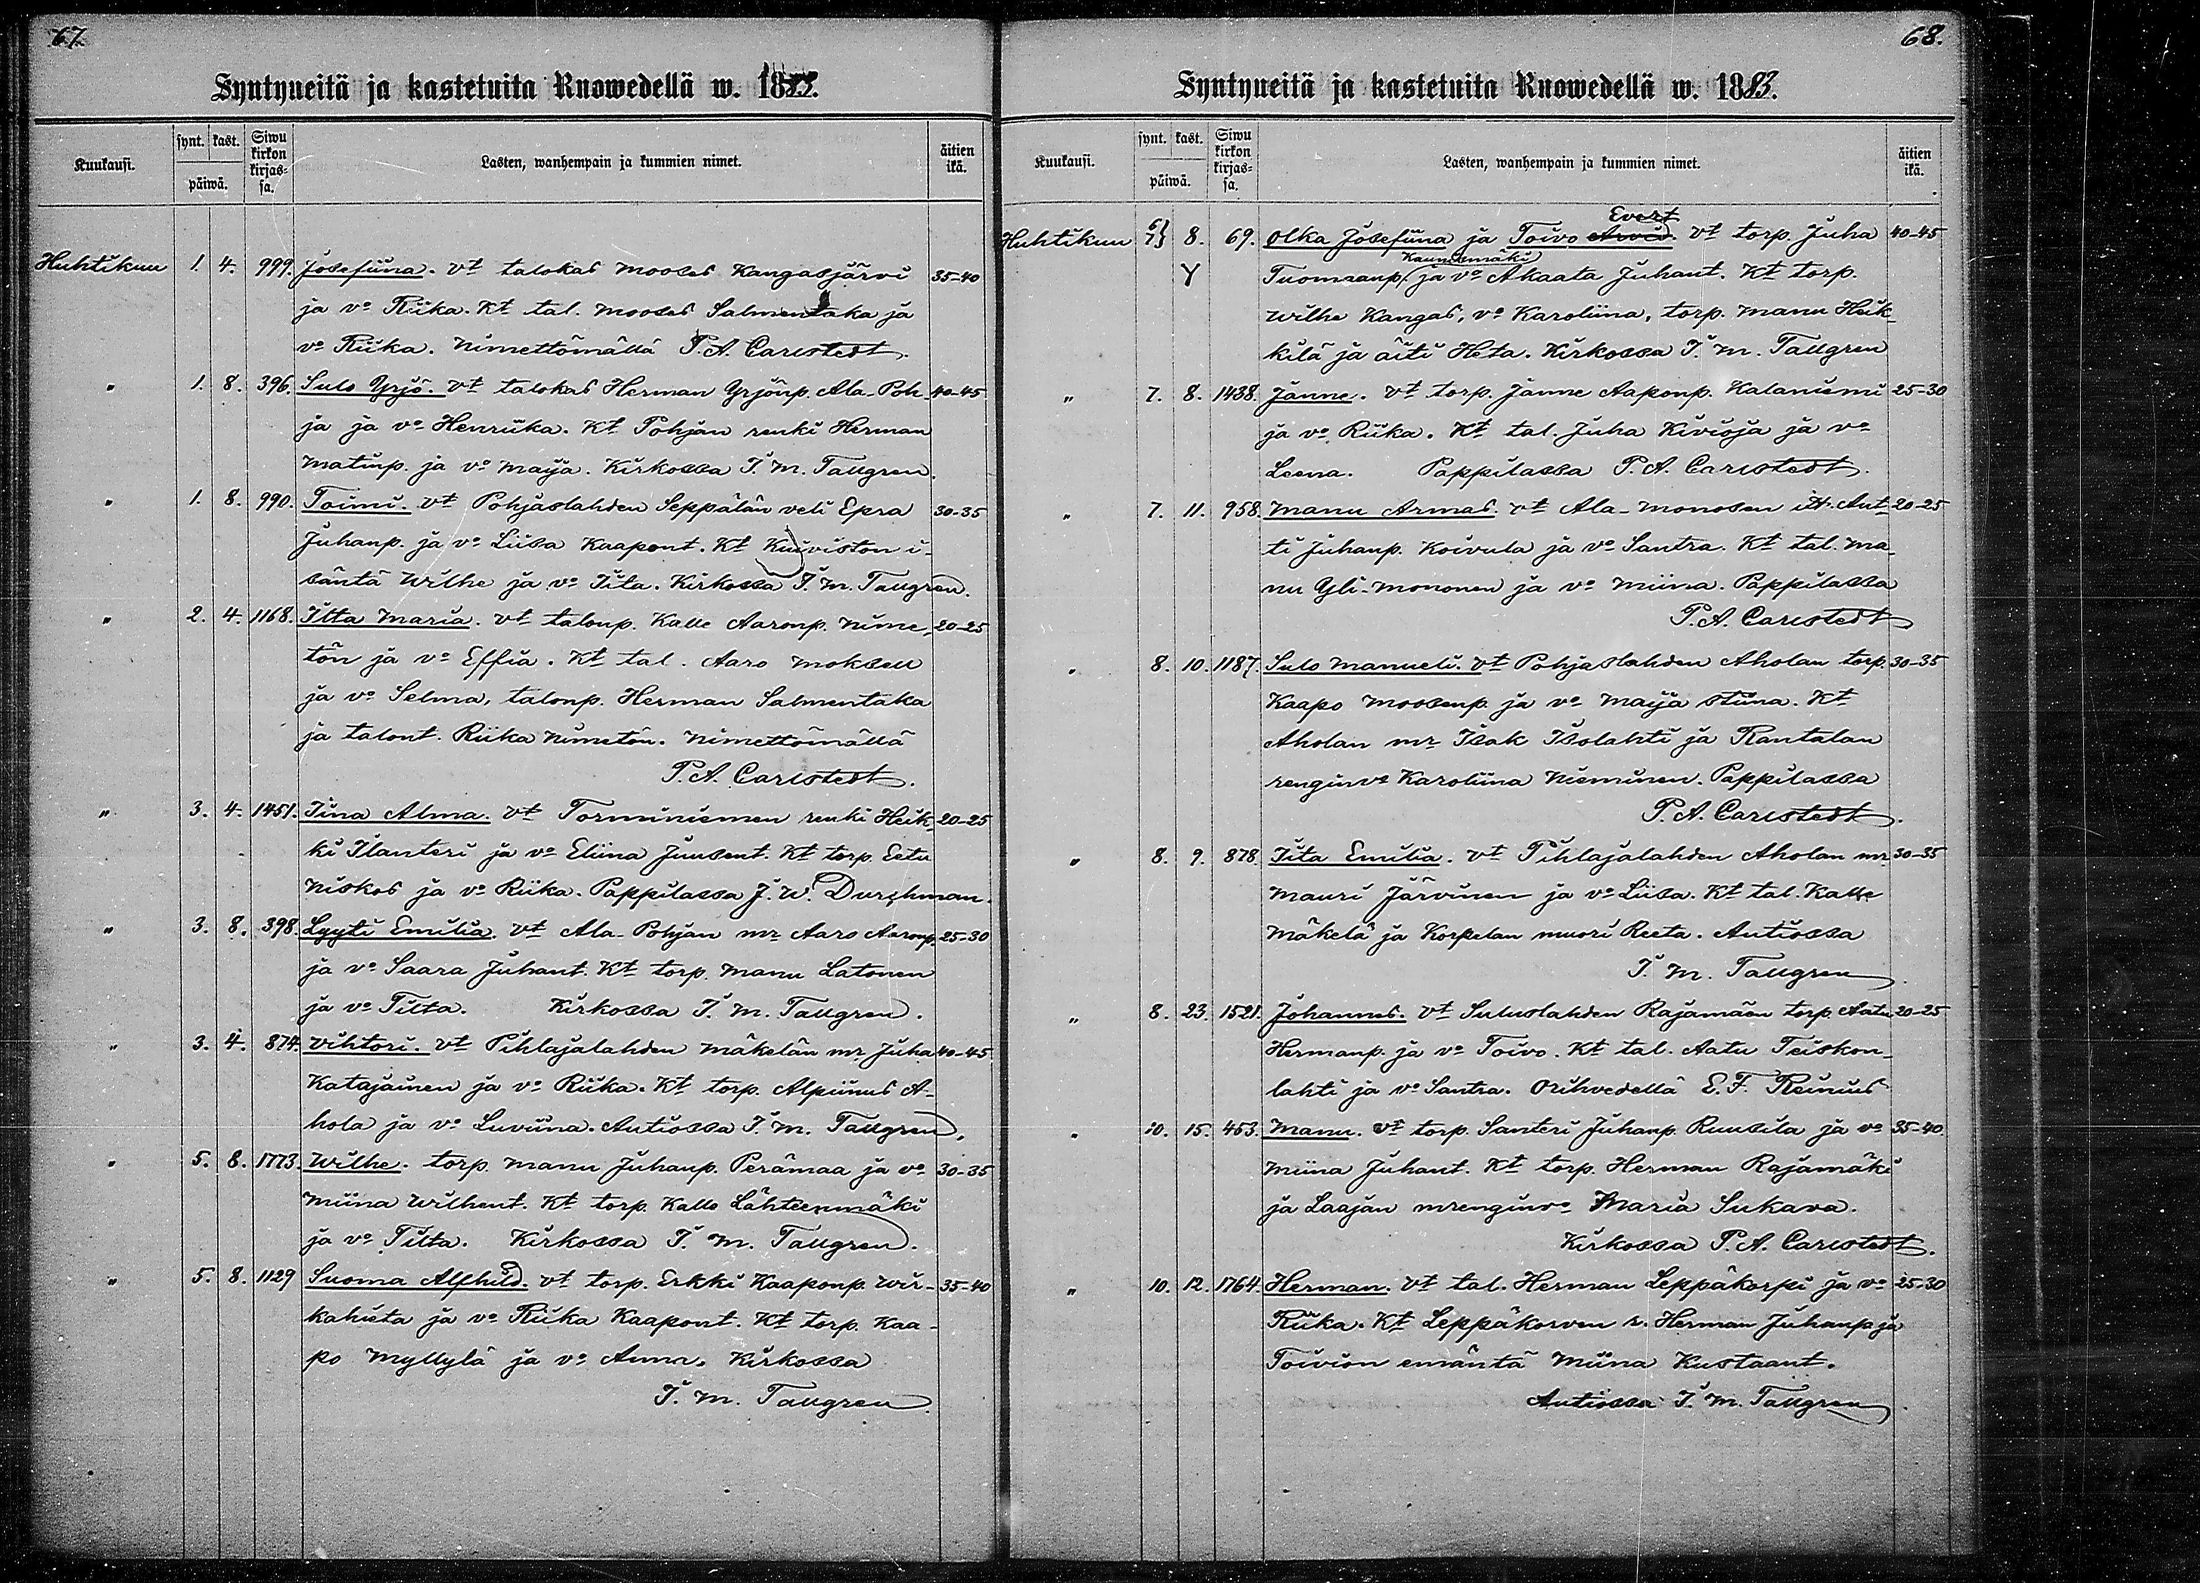 67.
Syntyneitä ja kastetuita Ruowedellä w. 1883.
Kuukausi.
synt. kast.
päiwä.
Siwu kirkon kirjas=sa.
Lasten, wanhempain ja kummien nimet.
äitien ikä.
Huhtikuu 1. 4. 999. Josefiina. vt talokas Mooses Kangasjärvi 35-40
ja vo Riika. Kt tal. Mooses Salmentaka ja
vo Riika. Nimettömällä P. A. Carlstedt.
" 1. 8. 396. Sulo Yrjö. vt talokas Herman Yrjönp. Ala-Poh- 40-45
ja ja vo Henriika. Kt Pohjan renki Herman
Matinp. ja vo Maija. Kirkossa I. M. Tallgren.
" 1. 8. 990. Toimi. vt Pohjaslahden Seppälän veli Epra 30-35
Juhanp. ja vo Liisa Kaapont. Kt Kuiviston i-
säntä Wilhe ja vo Iita. Kirkossa I. M. Tallgren.
" 2. 4. 1168. Iita Maria. vt talonp. Kalle Aaronp. Nime- 20-25
tön ja vo Effia. Kt tal. Aaro Moksen
ja vo Selma, talonp. Herman Salmentaka
ja talont. Riika Nimetön. Nimettömällä
P. A. Carlstedt.
" 3. 4. 1451. Iina Alma. vt Torminiemen renki Heik- 20-25
ki Ilanteri ja vo Eliina Juusent. Kt torp. Eetu
Niskos ja vo Riika. Pappilassa J. W. Durchman.
" 3. 8. 398. Lyyti Emilia. vt Ala-Pohjan mr Aaro Aaronp. 25-30
ja vo Saara Juhant. Kt torp. Manu Latonen
ja vo Tilta. Kirkossa I. M. Tallgren.
" 3. 4. 874. Vihtori. vt Pihlajalahden Mäkelän mr Juha 40-45
Katajainen ja vo Riika. Kt torp. Alpiinus A-
hola ja vo Luviina. Autiossa I. M. Tallgren.
" 5. 8. 1773. Wilhe. torp. Manu Juhanp. Perämaa ja vo 30-35
Miina Wilhent. Kt torp. Kalle Lähteenmäki
ja vo Tilta. Kirkossa I. M. Tallgren.
" 5. 8. 1129 Suoma Alfhild. vt torp. Erkki Kaaponp. Wir- 35-40
kahieta ja vo Riika Kaapont. Kt torp. Kaa-
po Myllylä ja vo Anna. Kirkossa
I. M. Tallgren.
68.
Syntyneitä ja kastetuita Ruowedellä w. 1883.
Kuukausi.
synt. kast.
päiwä.
Siwu kirkon kirjas=sa.
Lasten, wanhempain ja kummien nimet.
äitien ikä.
Evert
Huhtikuu 6 7 } 8. 69. Olka Josefiina ja Toivo Arvid. vt torp. Juha 40-45
Kaunismäki
Y Tuomaanp. ja vo Akaata Juhant. Kt torp.
Wilhe Kangas, vo Karoliina, torp. Manu Heik-
kilä ja äiti Heta. Kirkossa I. M. Tallgren
" 7. 8. 1438. Janne. vt torp. Janne Aaponp. Kalaniemi 25-30
ja vo Riika. Kt tal. Juha Kivioja ja vo
Leena. Pappilassa P. A. Carlstedt.
" 7. 11. 958. Manu Armas. vt Ala-Monosen itr. Ant- 20-25
ti Juhanp. Koivula ja vo Santra. Kt tal. Ma-
nu Yli-Mononen ja vo Miina. Pappilassa
P. A. Carlstedt
" 8. 10. 1187. Sulo Manueli. vt Pohjaslahden Aholan torp. 30-35
Kaapo Moosenp. ja vo Maija Stiina. Kt
Aholan mr Isak Isolahti ja Rantalan
renginvo Karoliina Nieminen. Pappilassa
P. A. Carlstedt.
" 8. 9. 878. Iita Emilia. vt Pihlajalahden Aholan mr 30-35
Mauri Järvinen ja vo Liisa. Kt tal. Kalle
Mäkelä ja Korpelan muori Reeta. Autiossa
I. M. Tallgren
" 8. 23. 1521. Johannes. vt Suluslahden Rajamäen torp. Aatu 20-25
Hermanp. ja vo Toivo. Kt tal. Aatu Teiskon-
lahti ja vo Santra. Orihvedellä E. F. Reinius
" 10. 15. 453. Manu. vt torp. Santeri Juhanp. Ruusila ja vo 35-40.
Miina Juhant. Kt torp. Herman Rajamäki
ja Laajan mrenginvo Maria Sukava.
Kirkossa P. A. Carlstedt.
" 10. 12. 1764. Herman. vt tal. Herman Leppäkorpi ja vo 25-30
Riika. Kt Leppäkorven r. Herman Juhanp. ja
Toivion emäntä Miina Kustaant.
Autiossa I. M. Tallgren